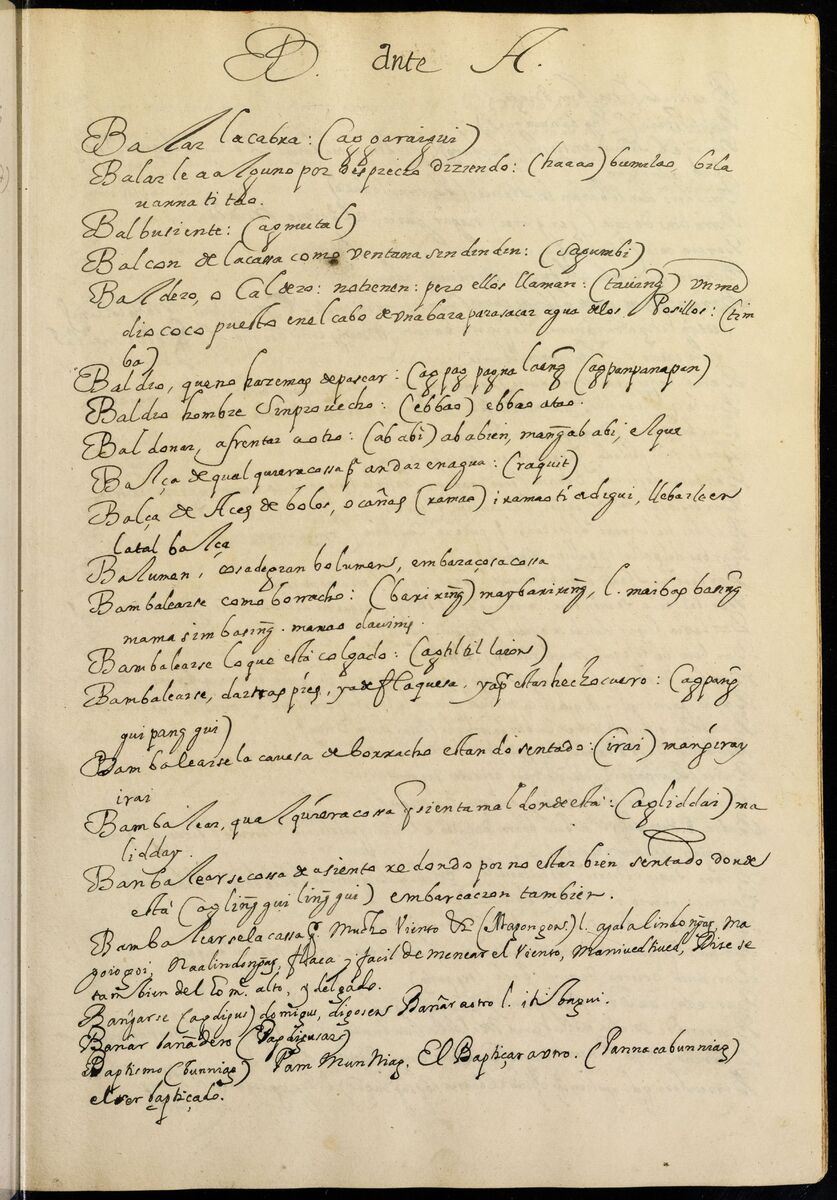 B. ante A.
Balar la cabra: (aggaraigui)
Balarle a alguno por desprecio diziendo: (haaao) bumilao, bila
uanna ti tao.
Balbusiente: (agmutal)
Balcon de la cassa como ventana sin dindin: (sagumbi)
Baldero, o Caldero: no tienen: pero ellos llaman: (tauang) vn me
dio coco puesto en el cabo de vna bara para sacar agua de los Posillos: (tim
ba)
Baldio, que no haze mas de pasear: (agpag pagna laeng (agpanpanapan)
Baldio hombre sin prouecho: (ebbao) ebbao a tao.
Baldonar, afrentar a otro: (ab abi) ab abien, mang̃ab abi, el que
Balça de qual quiera cossa p.ª andar en agua: (raquit)
Balça de Açes de bolos, o cañas (ramaa) i ramao ti adigui, llebarle en
la tal balça
Baluman, cosa de gran bolumen, embaraçosa cossa
Bambalearse como borracho: (bariring̃) maybariring̃, l. maibas basing̃
mama sim basing̃.
Bambalearse lo que està colgado: (agtilòl laions)
Bambalearse, dar tras pies, ya de flaquesa, yap.r estar hecho cuero: (agpang̃
gui pang gui)
Bambalearse la cauesa de borracho estando sentado: (irai) mang̃iray
irai
Bambalear, qual quiera cossa q̃ sienta mal donde està: (agliddai) ma
lidday.
Banbalearse cossa de asiento redondo por no estar bien sentado donde
està (agling̃gui ling̃gui) embarcacion tambien.
Bambalearse la cassa p.r mucho viento &c (Agpongons) l.
goiogoi, flaca y facil de menear el viento, Dise se
tambien del hom.e alto, y delgado.
Bañarse (agdigus) domigus, digosens Bañar a otro l.
Bañar bañadero (Pagdigusan)
Baptismo (bunniag) Pam Munniag. El Baptiçar a otro. (Pannacabunniag)
el ser baptiçado.